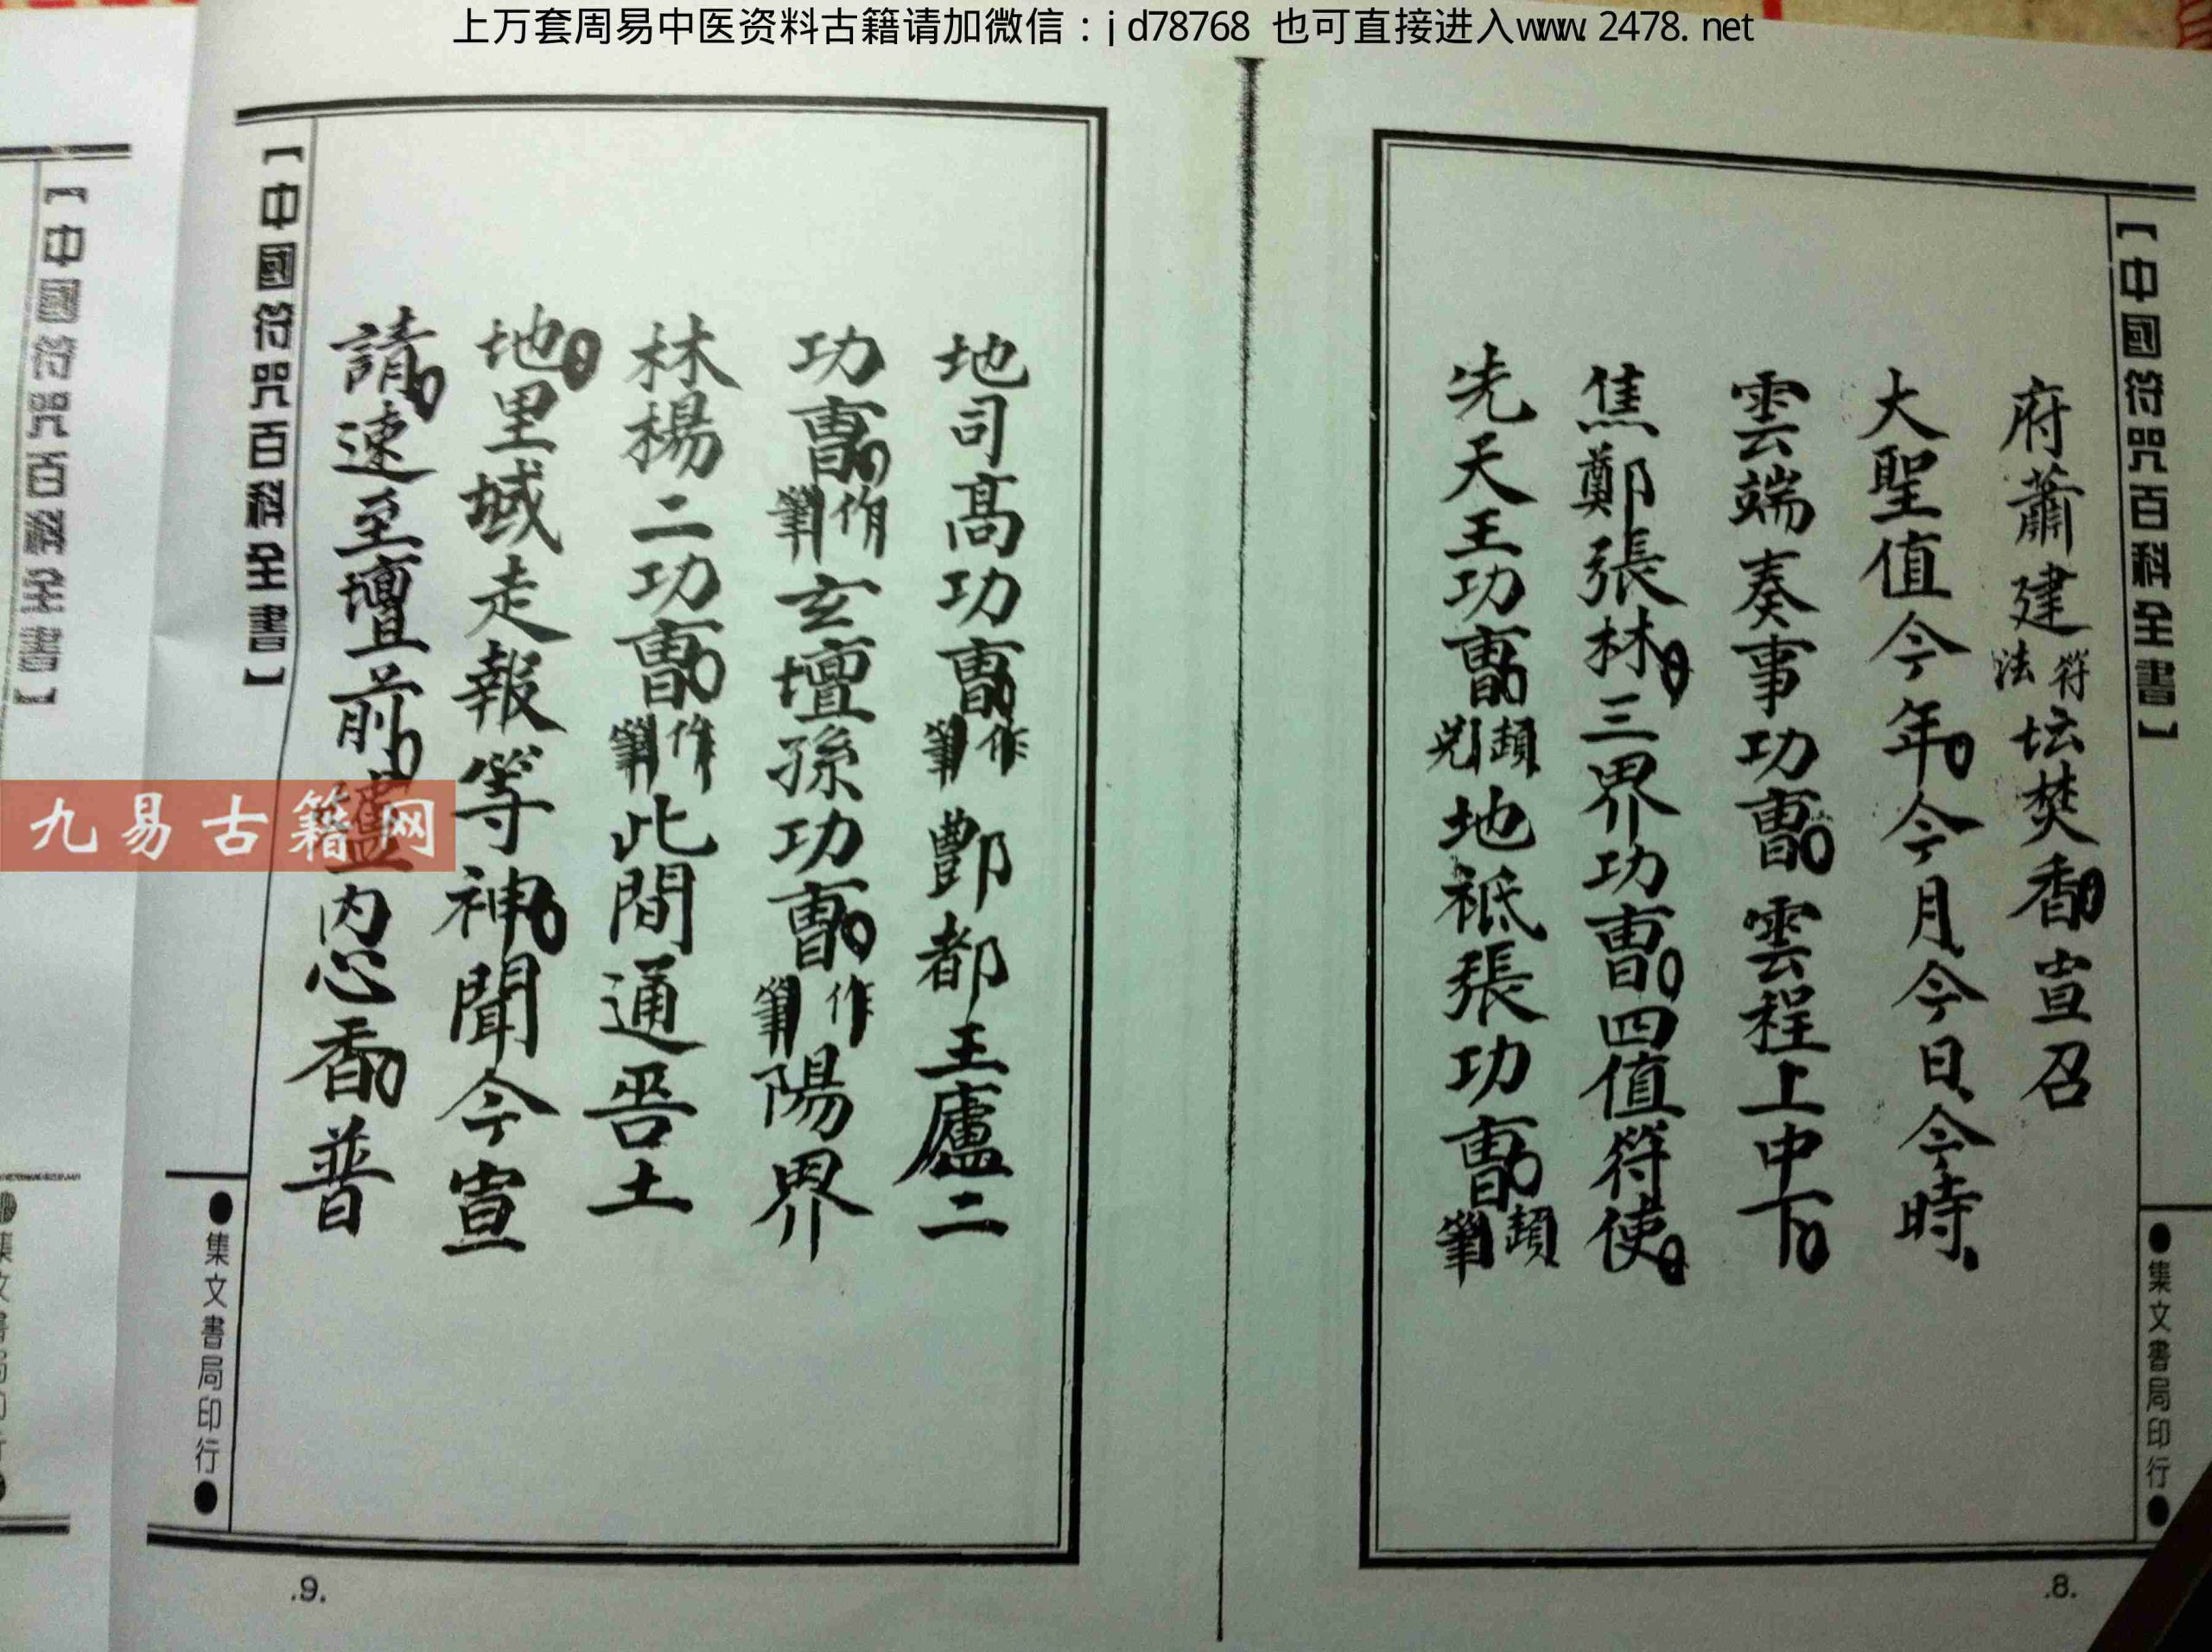 上万套周易中医资料古籍请加微信：jd78768 也可直接进入www.2478.net
【中國符咒百科全書】
●集文書局印行●
府蕭建符法坛焚香宣召
大聖值今年今月今日今時
雲端奏事功曹雲程上中下
焦鄭張林三界功曹四值符使
先天王功曹地祇張功曹
.8.
地司高功曹作筆酆都王廬二
功曹作筆玄壇孫功曹作筆陽界
林楊二功曹作筆此間通晋土
地里域走報等神聞今宣
請速至壇前爐内心香普
【中國符咒百科全書】
●集文書局印行●
.9.
【中國符咒百科全書】
九易古籍网